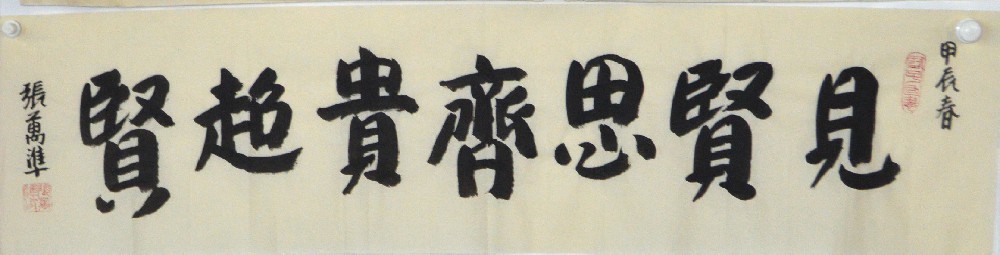 甲辰春
見賢思齊貴超賢
張萬準